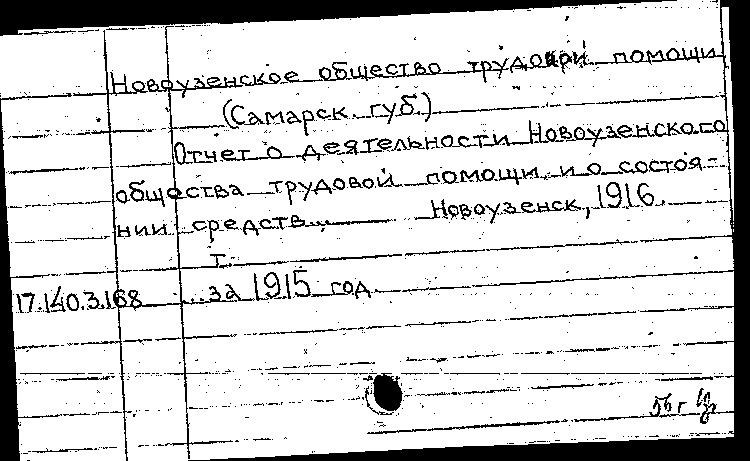 Новоузенское общество трудовой помощи
(Самарск. губ.)
Отчет о деятельности Новоузенского
общества трудовой помощи и о состоя-
нии средств... Новоузенск, 1916.
т.
17.140.3.168 ...за 1915 год.
56 г